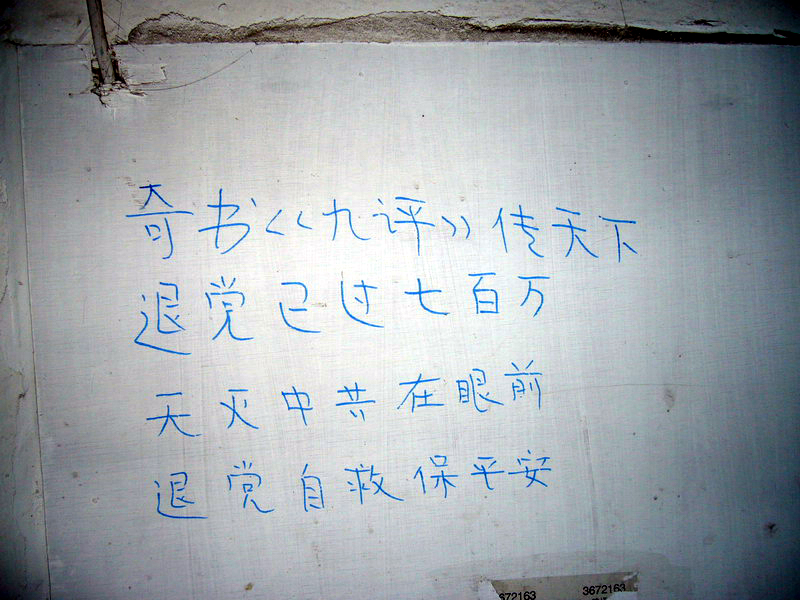 奇书《九评》传天下
退党已过七百万
天灭中共在眼前
退党自救保平安
672163 3672163